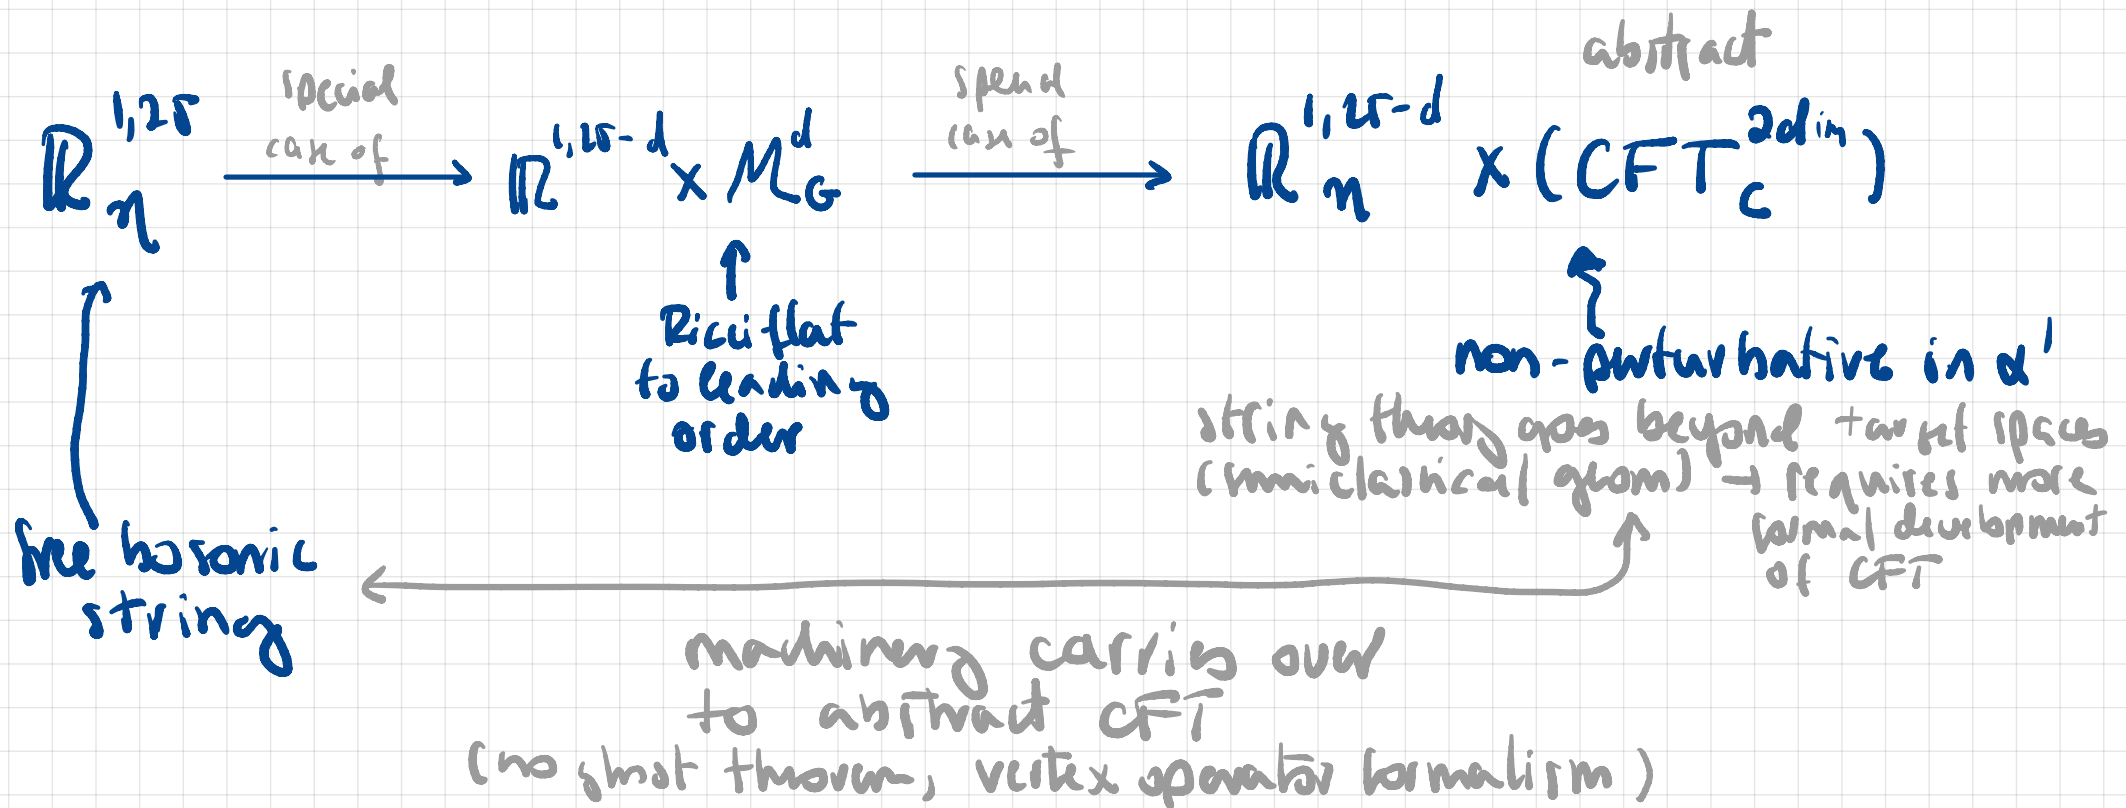 abstract
special
case of
special
case of
ℝ_η^{1,25} → ℝ^{1,25-d} × M_G^d → ℝ_η^{1,25-d} × (CFT_c^{2dim})
Ricci flat
to leading
order
non-perturbative in α'
string theory goes beyond target spaces
(semiclassical geom) → requires more
formal development
of CFT
free bosonic
string
machinery carries over
to abstract CFT
(no ghost theorem, vertex operator formalism)